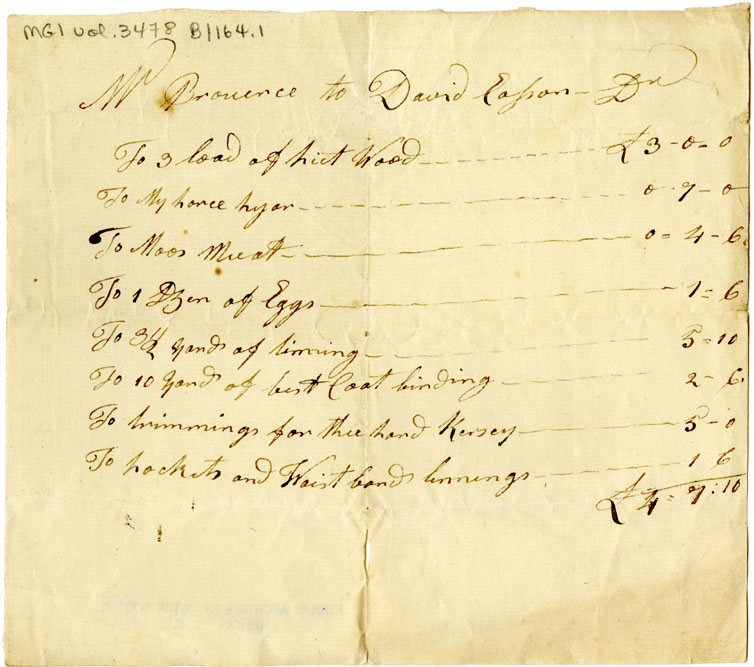 MG1 vol. 3478 B/164.1
Mr Prouence to David Easson – Dr
To 3 load of hict Wood £ 3 - 0 - 0
To My horce hyar 0 - 7 - 0
To Moos Meeat 0 = 4 - 6
To 1 Dzen of Eggs 1 = 6
To 3½ yards of linning 5 = 10
To 10 yards of best Coat binding 2 - 6
To trimmings for thee hand Kersey 5 - 0
To pockets and Waist bands linnings 1 6
£ 4 = 7 : 10
PUBLIC ARCHIVES OF NOVA SCOTIA
HALIFAX, N. S.